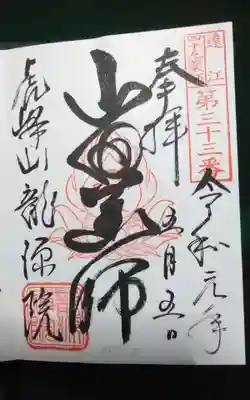 遠江
第三十三番
令和元年
五月五日
奉拝
薬師
虎峰山龍源院